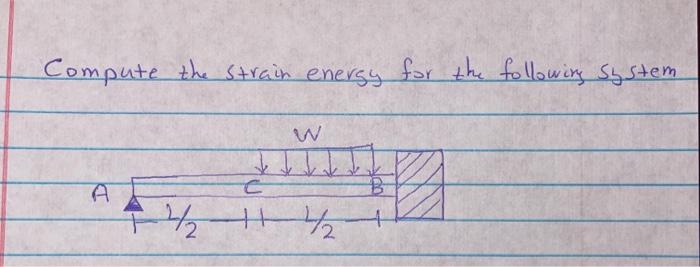 Compute the strain energy for the following system
W
A C B
L/2 L/2